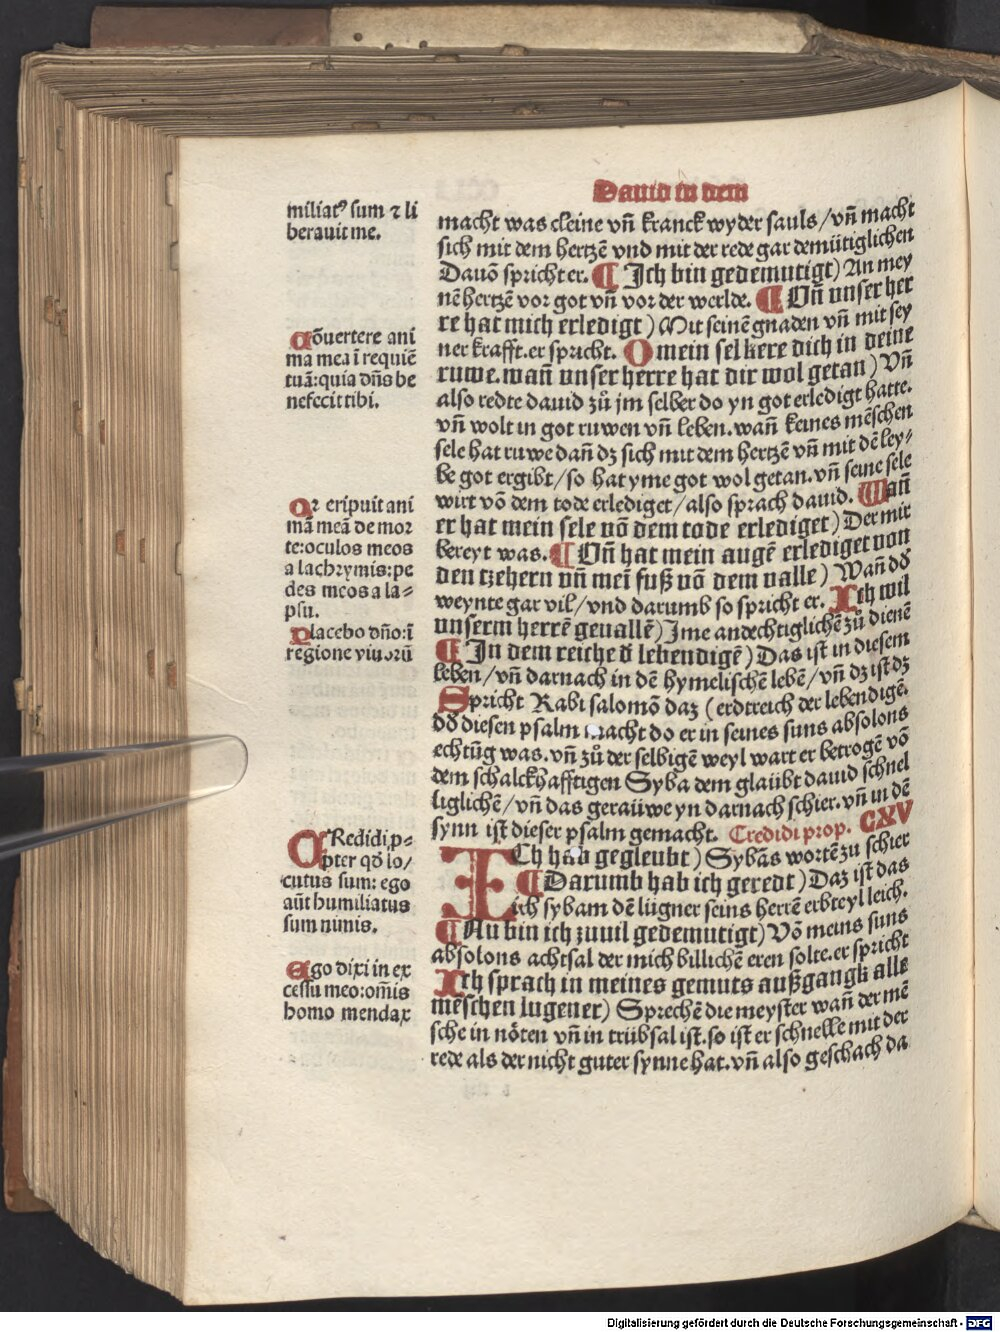 Dauid in dem
miliatꝰ sum ⁊ li
berauit me.
Cōuertere ani
ma mea ī requiē
tuā: quia dn̄s be
nefecit tibi.
Qr eripuit ani
mā meā de mor
te: oculos meos
a lachrymis: pe
des meos a la-
psu.
Placebo dn̄o: ī
regione viuorū
CRedidi, p-
pter qd̛ lo/
cutus sum: ego
aūt humiliatus
sum nimis.
Ego dixi in ex
cessu meo: om̄is
homo mendax
macht was cleine vn̄ kranck wyder sauls/vn̄ macht
sich mit dem hertzē vnd mit der rede gar demütiglichen
Dauō spricht er. ¶ Ich bin gedemutigt) An mey
nē hertzē vor got vn̄ vor der werlde. ¶ Vn̄ unser her
re hat mich erledigt) Mit seinē gnaden vn̄ mit sey
ner krafft. er spricht. O mein sel kere dich in deine
ruwe. wan̄ unser herre hat dir wol getan) Vn̄
also redte dauid zů jm selber do yn got erledigt hatte.
vn̄ wolt in got ruwen vn̄ leben. wan̄ keines mēschen
sele hat ruwe dan̄ dz sich mit dem hertzē vn̄ mit dē ley/
be got ergibt/so hat yme got wol getan. vn̄ seine sele
wirt vō dem tode erlediget/also sprach dauid. Wan̄
er hat mein sele vō dem tode erlediget) Der mir
bereyt was. ¶ Vn̄ hat mein augē erlediget von
den tzehern vn̄ mei fuß vō dem valle) Wan̄ dd̛
weynte gar vil/vnd darumb so spricht er. Ich wil
unserm herrē geuallē) Ime andechtiglichē zů dienē
¶ In dem reiche d̛ lebendigē) Das ist in diesem
leben/vn̄ darnach in dē hymelischē lebē/vn̄ dz ist dz
Spricht Rabi salomō daz (erdtreich der lebendigē.
dd̛ diesen psalm macht do er in seines suns absolons
echtūg was. vn̄ zů der selbigē weyl wart er betrogē vō
dem schalckhafftigen Syba dem glaübt dauid schnel
liglichē/vn̄ das geraüwe yn darnach schier. vn̄ in dē
synn ist dieser psalm gemacht. Credidi prop. CXV
ICh hab gegleubt) Sybās wortē zu schier
¶ Darumb hab ich geredt) Daz ist das
ich sybam dē lügner seins herrē erbteyl leich.
¶ Nu bin ich zuuil gedemutigt) Vō meins suns
absolons achtsal der mich billichē eren solte. er spricht
Ich sprach in meines gemuts außgangk alle
mēschen lugener) Sprechē die meyster wan̄ der mē
sche in nöten vn̄ in trübsal ist. so ist er schnelle mit der
rede als der nicht guter synne hat. vn̄ also geschach da
Digitalisierung gefördert durch die Deutsche Forschungsgemeinschaft - DFG